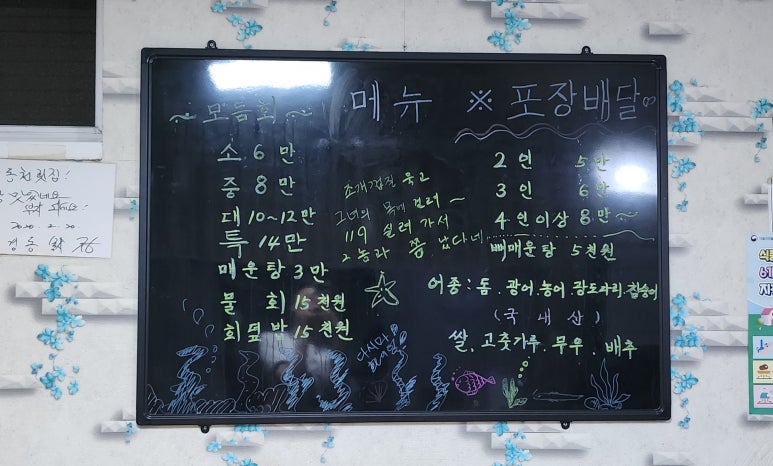 메뉴
~ 모듬회 ~
소 6만
중 8만
대 10~12만
특 14만
매운탕 3만
물 회 15천원
회덮밥 15천원
조개껍질 묶고
그녀의 목에 걸려~
119 실려가서
그놈과 쫑 났다네
다시마
※ 포장배달
2인 5만
3인 6만
4인이상 8만~
뼈매운탕 5천원
어종 : 돔. 광어. 농어. 광도다리. 참숭어
(국내산)
쌀. 고춧가루. 무우. 배추
맛있네요
2020. 2. 20